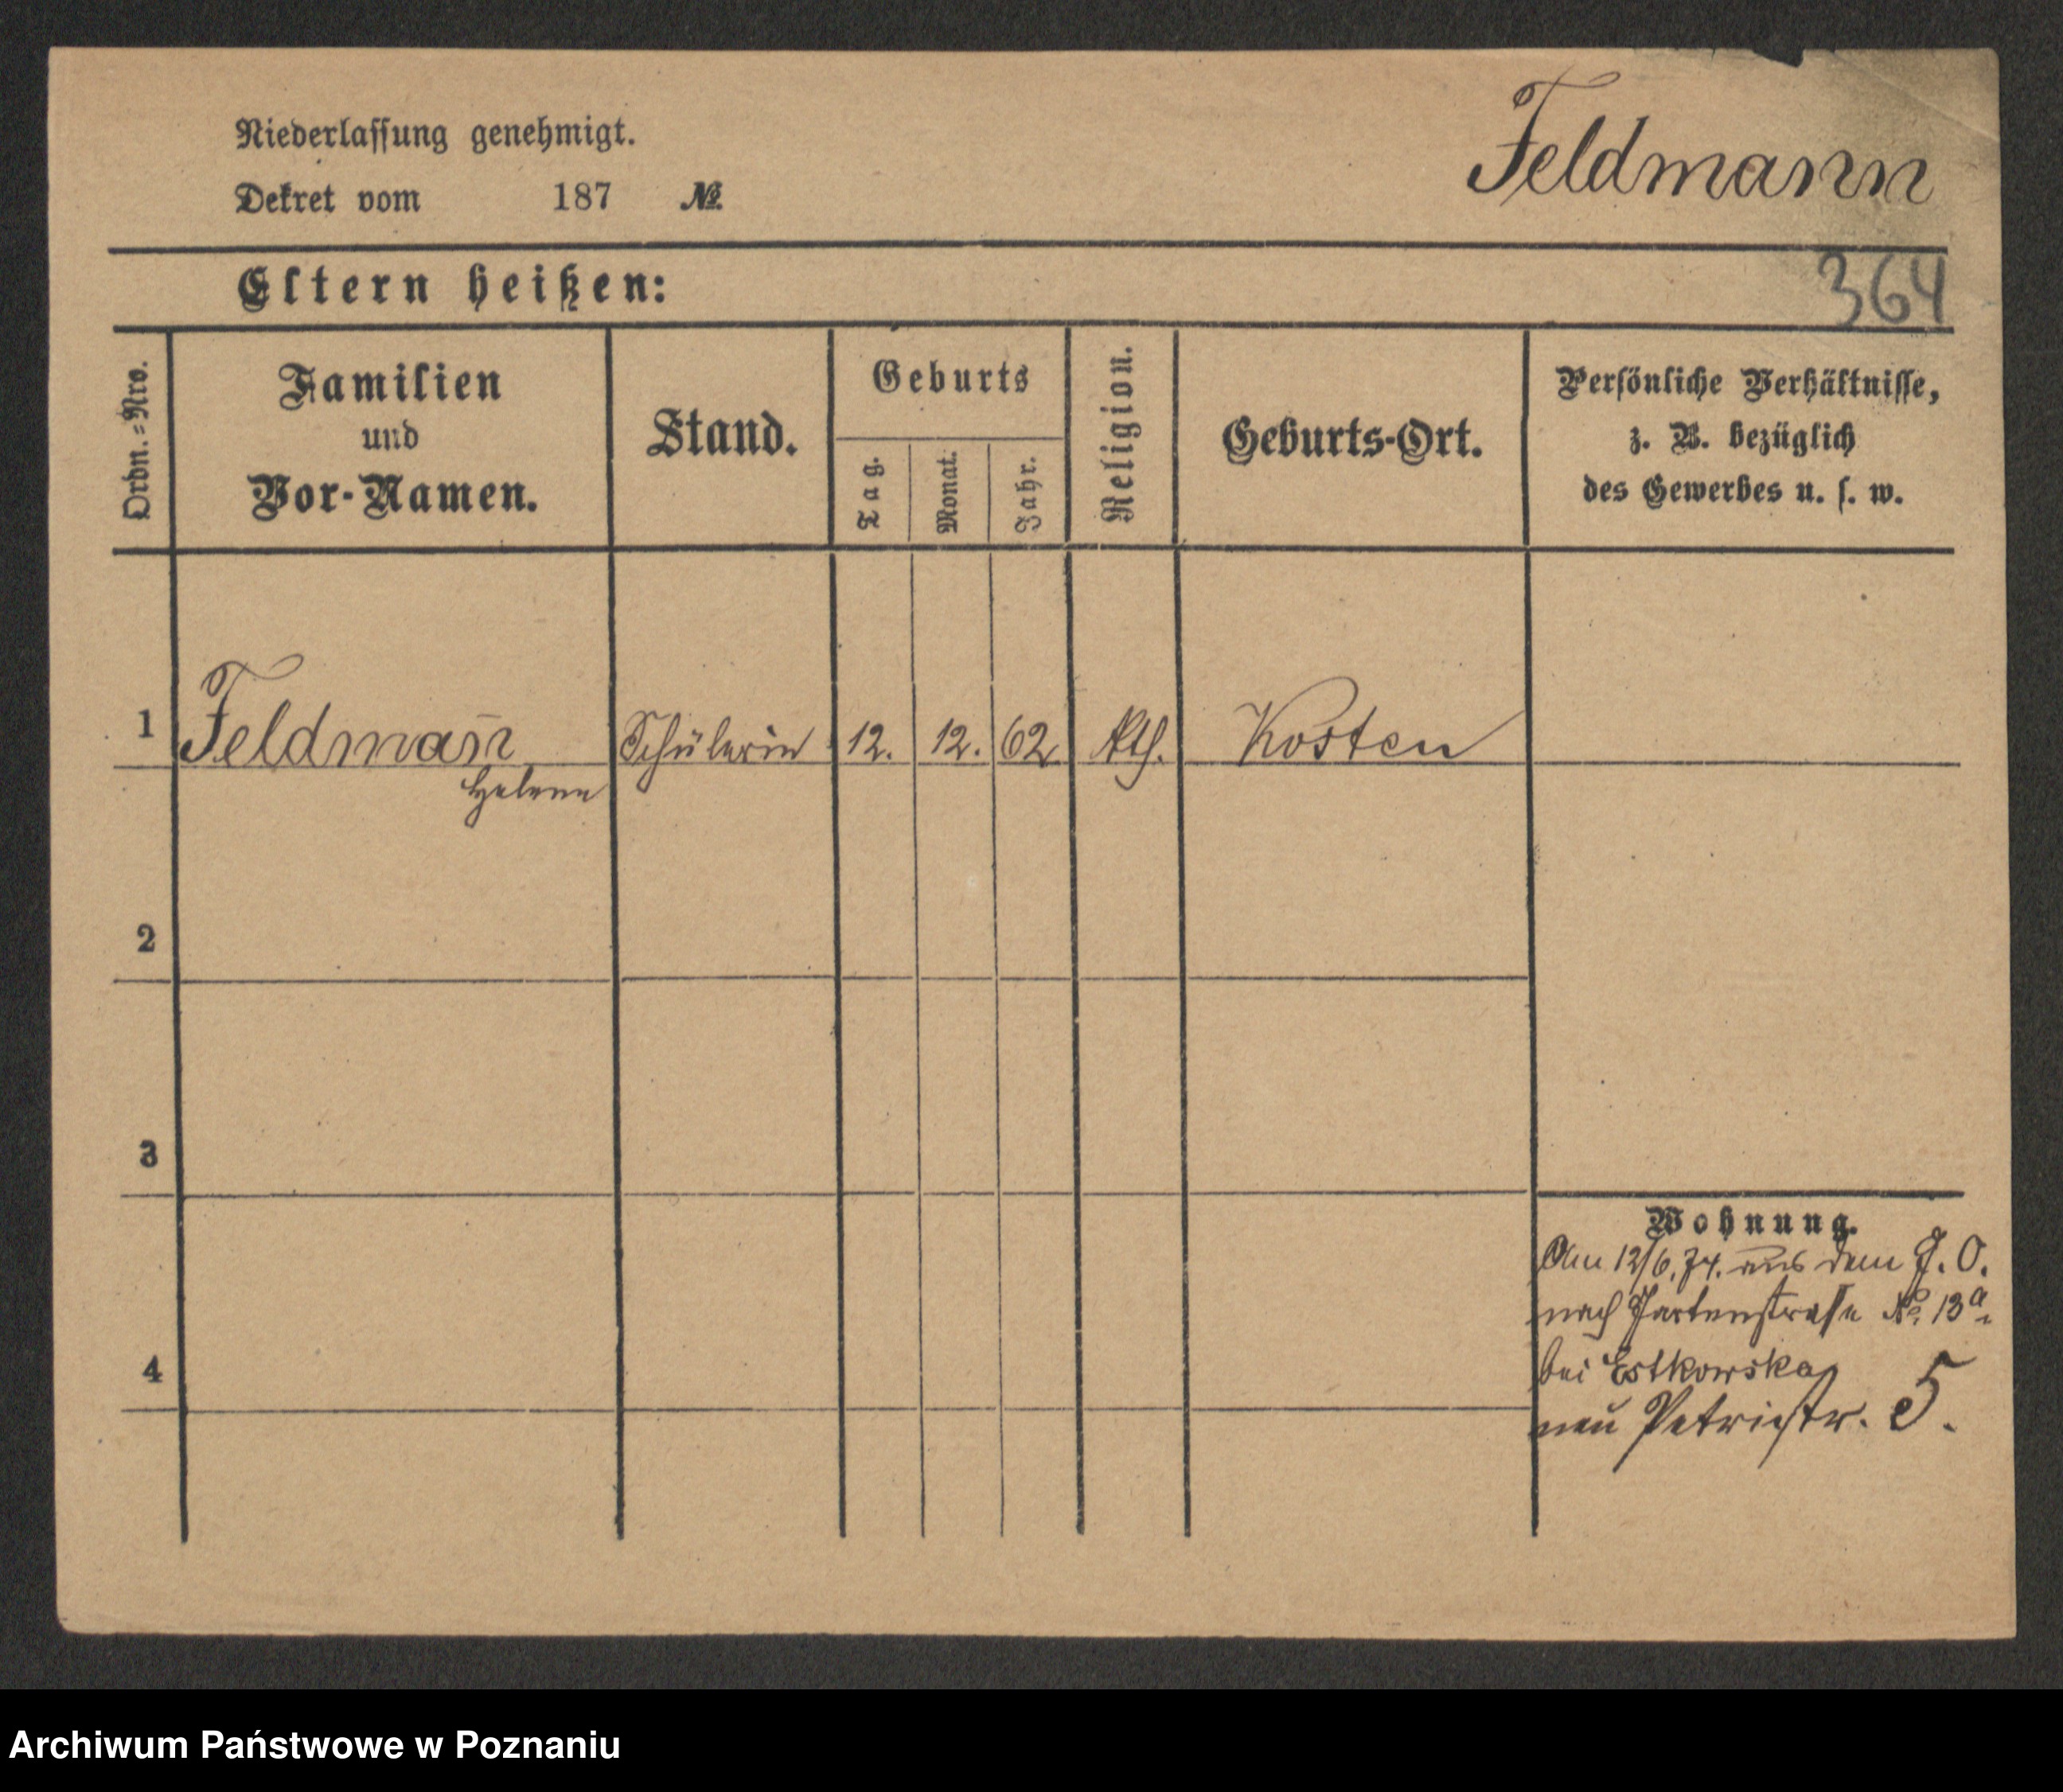 Niederlassung genehmigt.
Dekret vom 187 №
Feldmann
Eltern heißen:
364
Ordn.=Nro.
Familien
und
Vor-Namen.
Stand.
Geburts
Tag.
Monat.
Jahr.
Religion.
Geburts-Ort.
Persönliche Verhältnisse,
z. B. bezüglich
des Gewerbes u. s. w.
1 Feldman̄ Schülerin 12. 12. 62 Kth. Kosten
Helene
2
3
4
Wohnung.
Am 12/6. 74. aus dem J. O.
nach Gartenstrasse № 13a.
bei Estkowska
neu Petristr. 5.
Archiwum Państwowe w Poznaniu